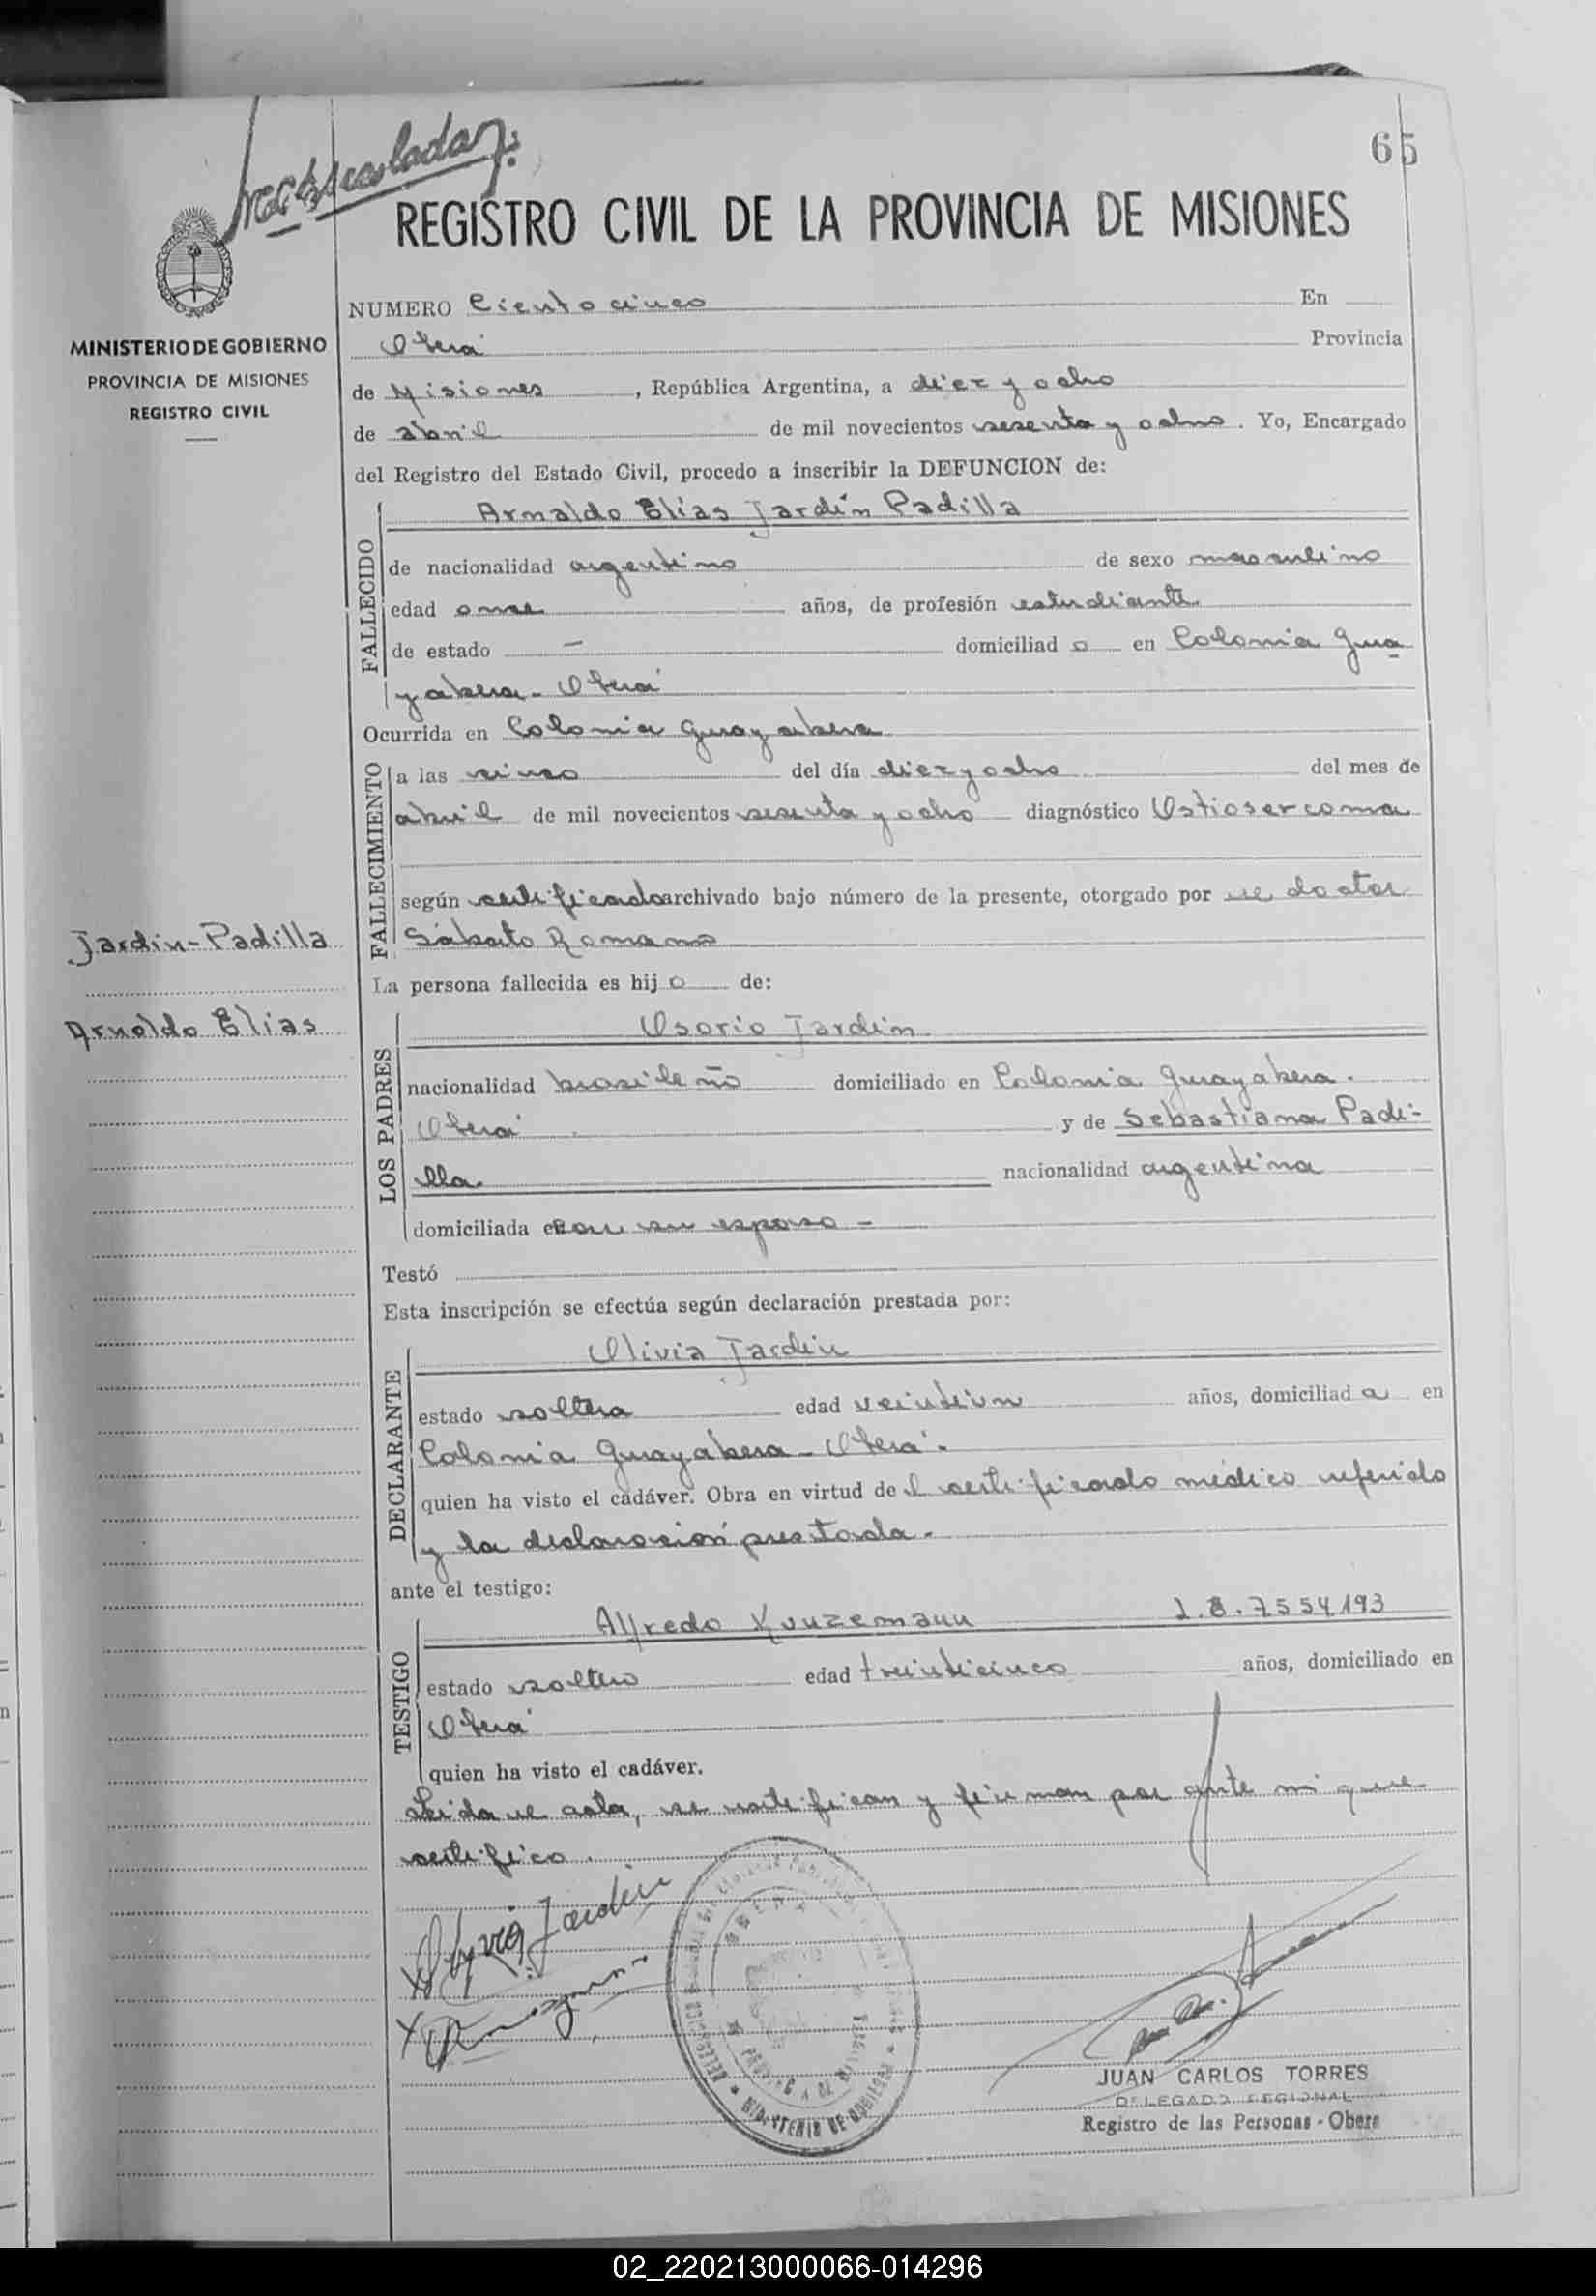 65
REGISTRO CIVIL DE LA PROVINCIA DE MISIONES
MINISTERIO DE GOBIERNO
PROVINCIA DE MISIONES
REGISTRO CIVIL
NUMERO Ciento cinco En
Oberá Provincia
de Misiones, República Argentina, a diez y ocho
de abril de mil novecientos sesenta y ocho. Yo, Encargado
del Registro del Estado Civil, procedo a inscribir la DEFUNCION de:
FALLECIDO
Arnaldo Elías Jardín Padilla
de nacionalidad argentino de sexo masculino
edad once años, de profesión estudiante
de estado – domiciliad o en Colonia Gua
yabera - Oberá
Ocurrida en Colonia Guayabera
FALLECIMIENTO
a las cinco del día diez y ocho del mes de
abril de mil novecientos sesenta y ocho diagnóstico Ostiosercoma
según certificado archivado bajo número de la presente, otorgado por el doctor
Sábato Romano
Jardin-Padilla
Arnoldo Elias
La persona fallecida es hij o de:
LOS PADRES
Osorio Jardin
nacionalidad brasileño domiciliado en Colonia Guayabera.
Oberá y de Sebastiana Padi-
lla. nacionalidad argentina
domiciliada con su esposo -
Testó
Esta inscripción se efectúa según declaración prestada por:
DECLARANTE
Olivia Jardin
estado soltera edad veintiun años, domiciliad a en
Colonia Guayabera - Oberá.
quien ha visto el cadáver. Obra en virtud de l certificado médico referido
y la declaración prestada.
ante el testigo:
TESTIGO
Alfredo Kunzemann 7554193
estado soltero edad treinticinco años, domiciliado en
Oberá
quien ha visto el cadáver.
Leida el acta, se ratifican y firman por ante mi que
certifico.
Jardin
MINISTERIO DE GOBIERNO
JUAN CARLOS TORRES
DELEGADO REGIONAL
Registro de las Personas - Oberá
02_220213000066-014296